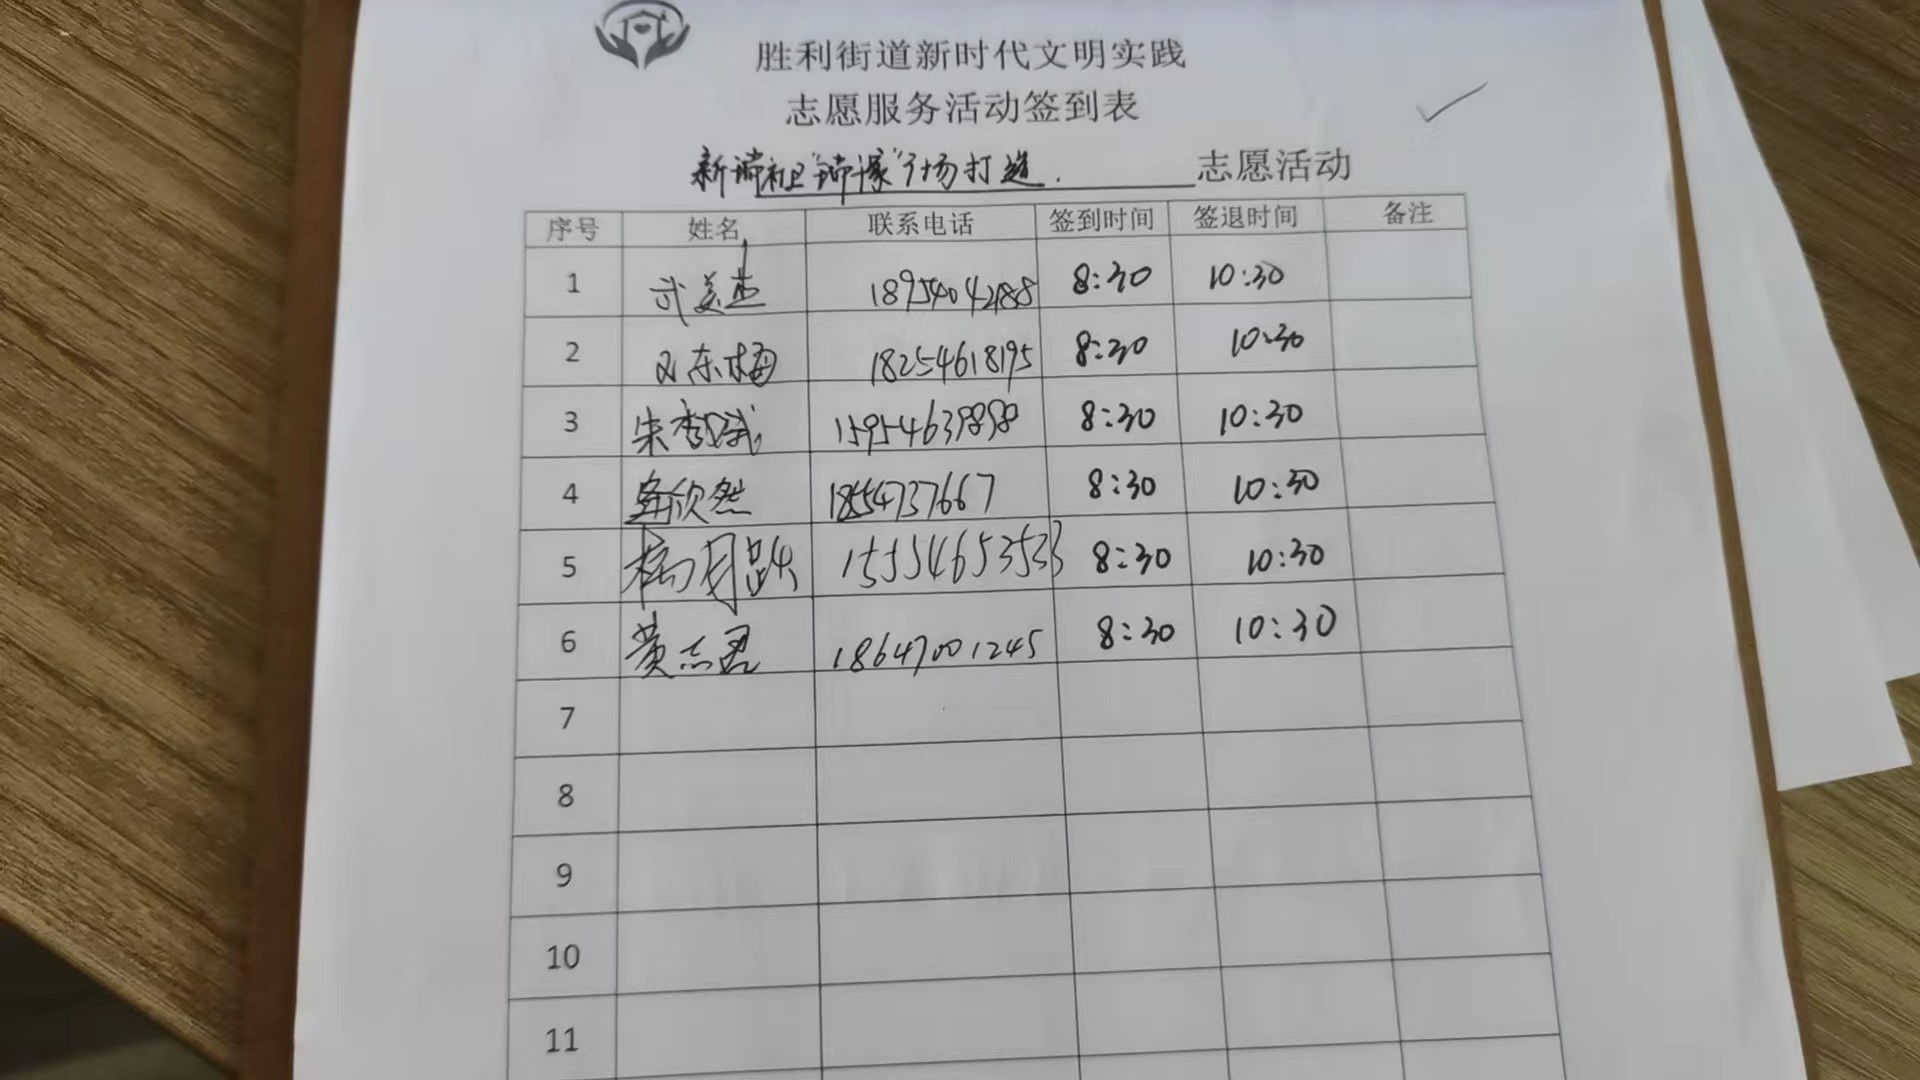 胜利街道新时代文明实践
志愿服务活动签到表
新瑞社区"瑞缘"广场打造. 志愿活动
序号 姓名 联系电话 签到时间 签退时间 备注
1 武美杰 18954042188 8:30 10:30
2 刘东梅 18254618195 8:30 10:30
3 朱秀娥 15954639898 8:30 10:30
4 欣然 18554737667 8:30 10:30
5 杨月 15554653533 8:30 10:30
6 黄志君 18647001245 8:30 10:30
7
8
9
10
11